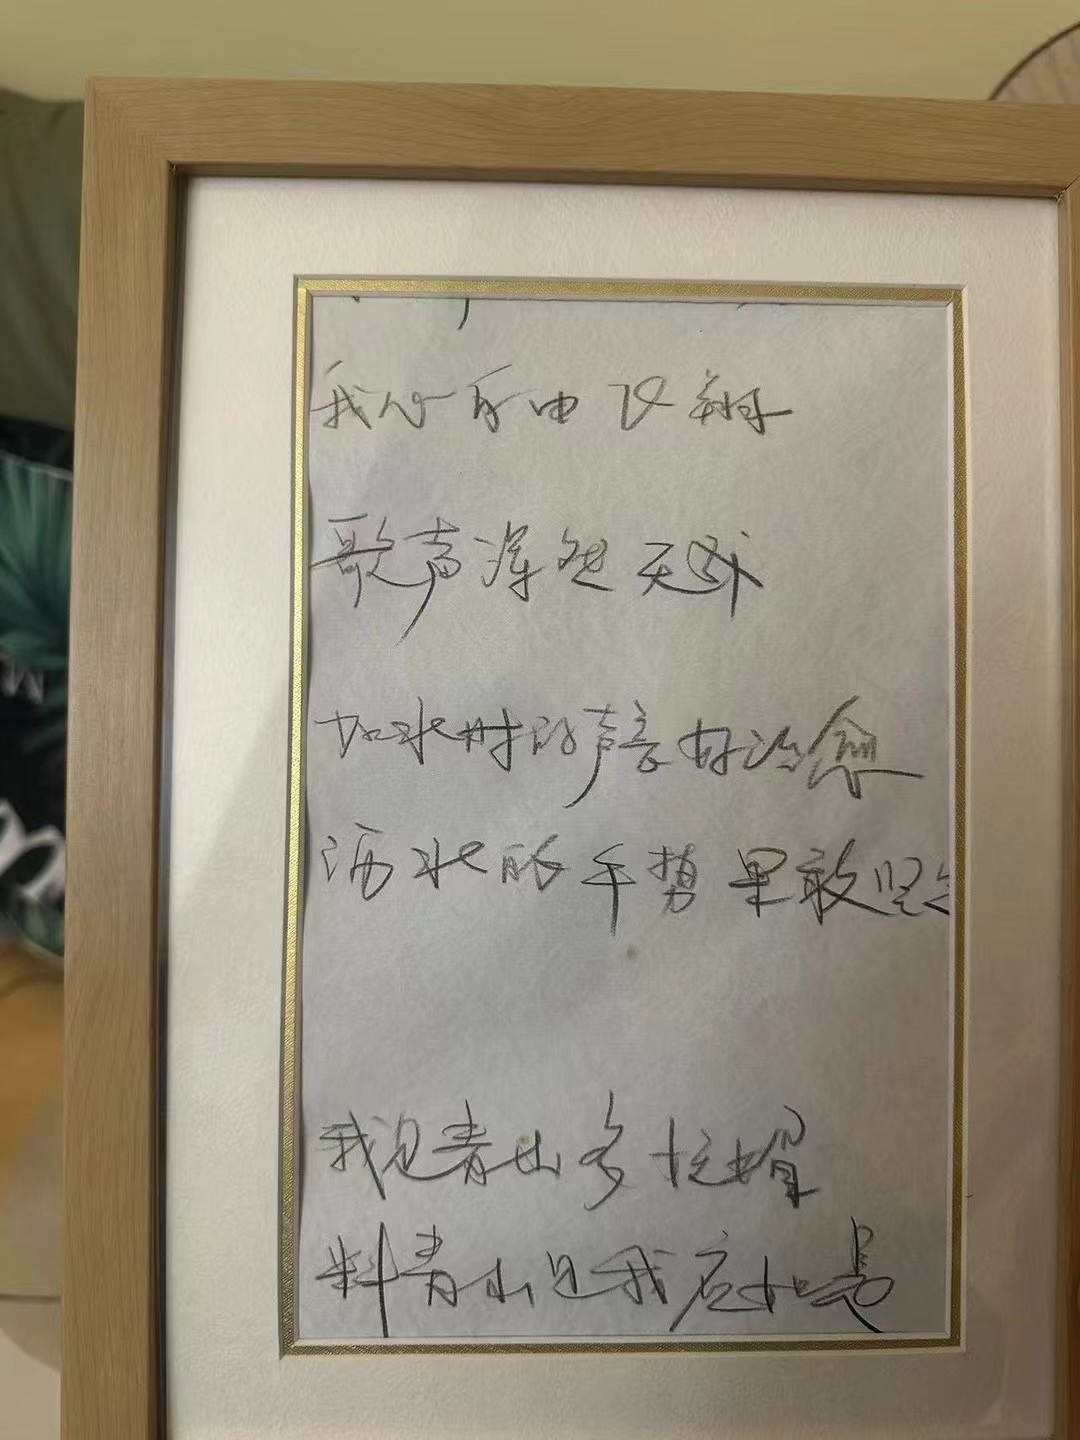 我心自由飞翔
歌声浑然天成
加水时的声音好治愈
沥水的手势果敢坚
我见青山多妩媚
料青山见我应如是